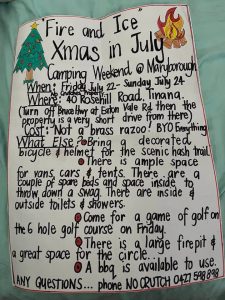 Fire and Ice
Xmas in July
Camping Weekend @ Maryborough
When: Friday July 22 - Sunday July 24
Where: 40 Rosehill Road, Tinana.
(Turn off Bruce Hwy at Eaton Vale Rd then the
property is a very short drive from there)
Cost: Not a brass razoo! BYO Everything
What Else? Bring a decorated
bicycle & helmet for the scenic hash trail.
There is ample space
for vans, cars & tents. There are a
couple of spare beds and space inside to
throw down a swag. There are inside &
outside toilets & showers.
Come for a game of golf on
the 6 hole golf course on Friday.
There is a large firepit &
a great space for the circle..
A bbq is available to use.
ANY QUESTIONS... phone NO CRUTCH 0427 598 898